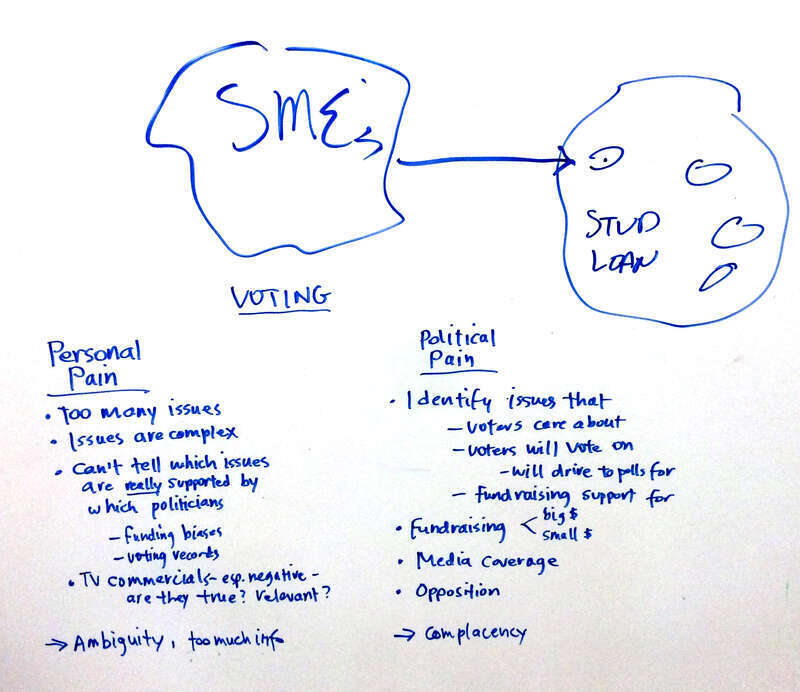 SME's
STUD
LOAN
VOTING
Personal
Pain
• Too many issues
• Issues are complex
• Can't tell which issues
are really supported by
which politicians
- funding biases
- voting records
• TV commercials - esp. negative -
are they true? relevant?
→ Ambiguity, too much info
Political
Pain
• Identify issues that
- voters care about
- voters will vote on
- will drive to polls for
- fundraising support for
• Fundraising < big $
small $
• Media coverage
• Opposition
→ Complacency